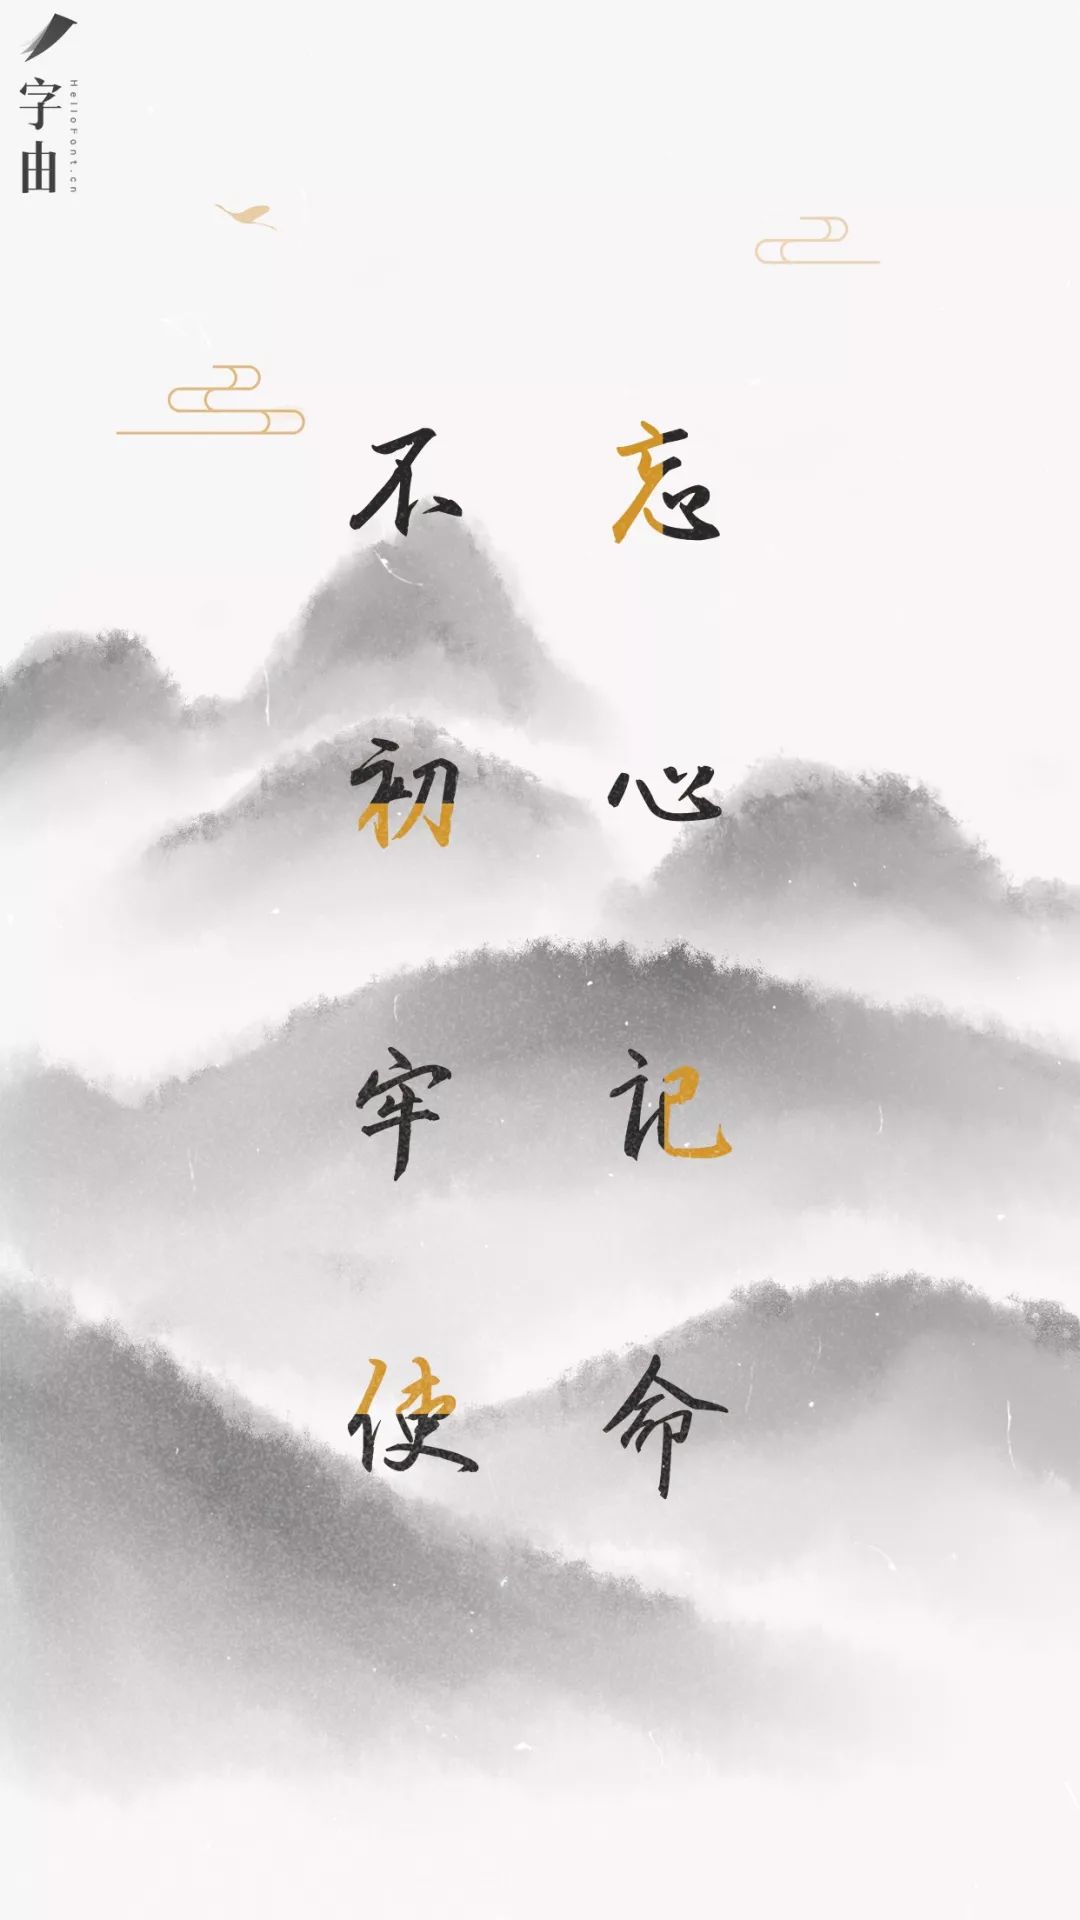 字由
HelloFont.cn
不忘
初心
牢记
使命